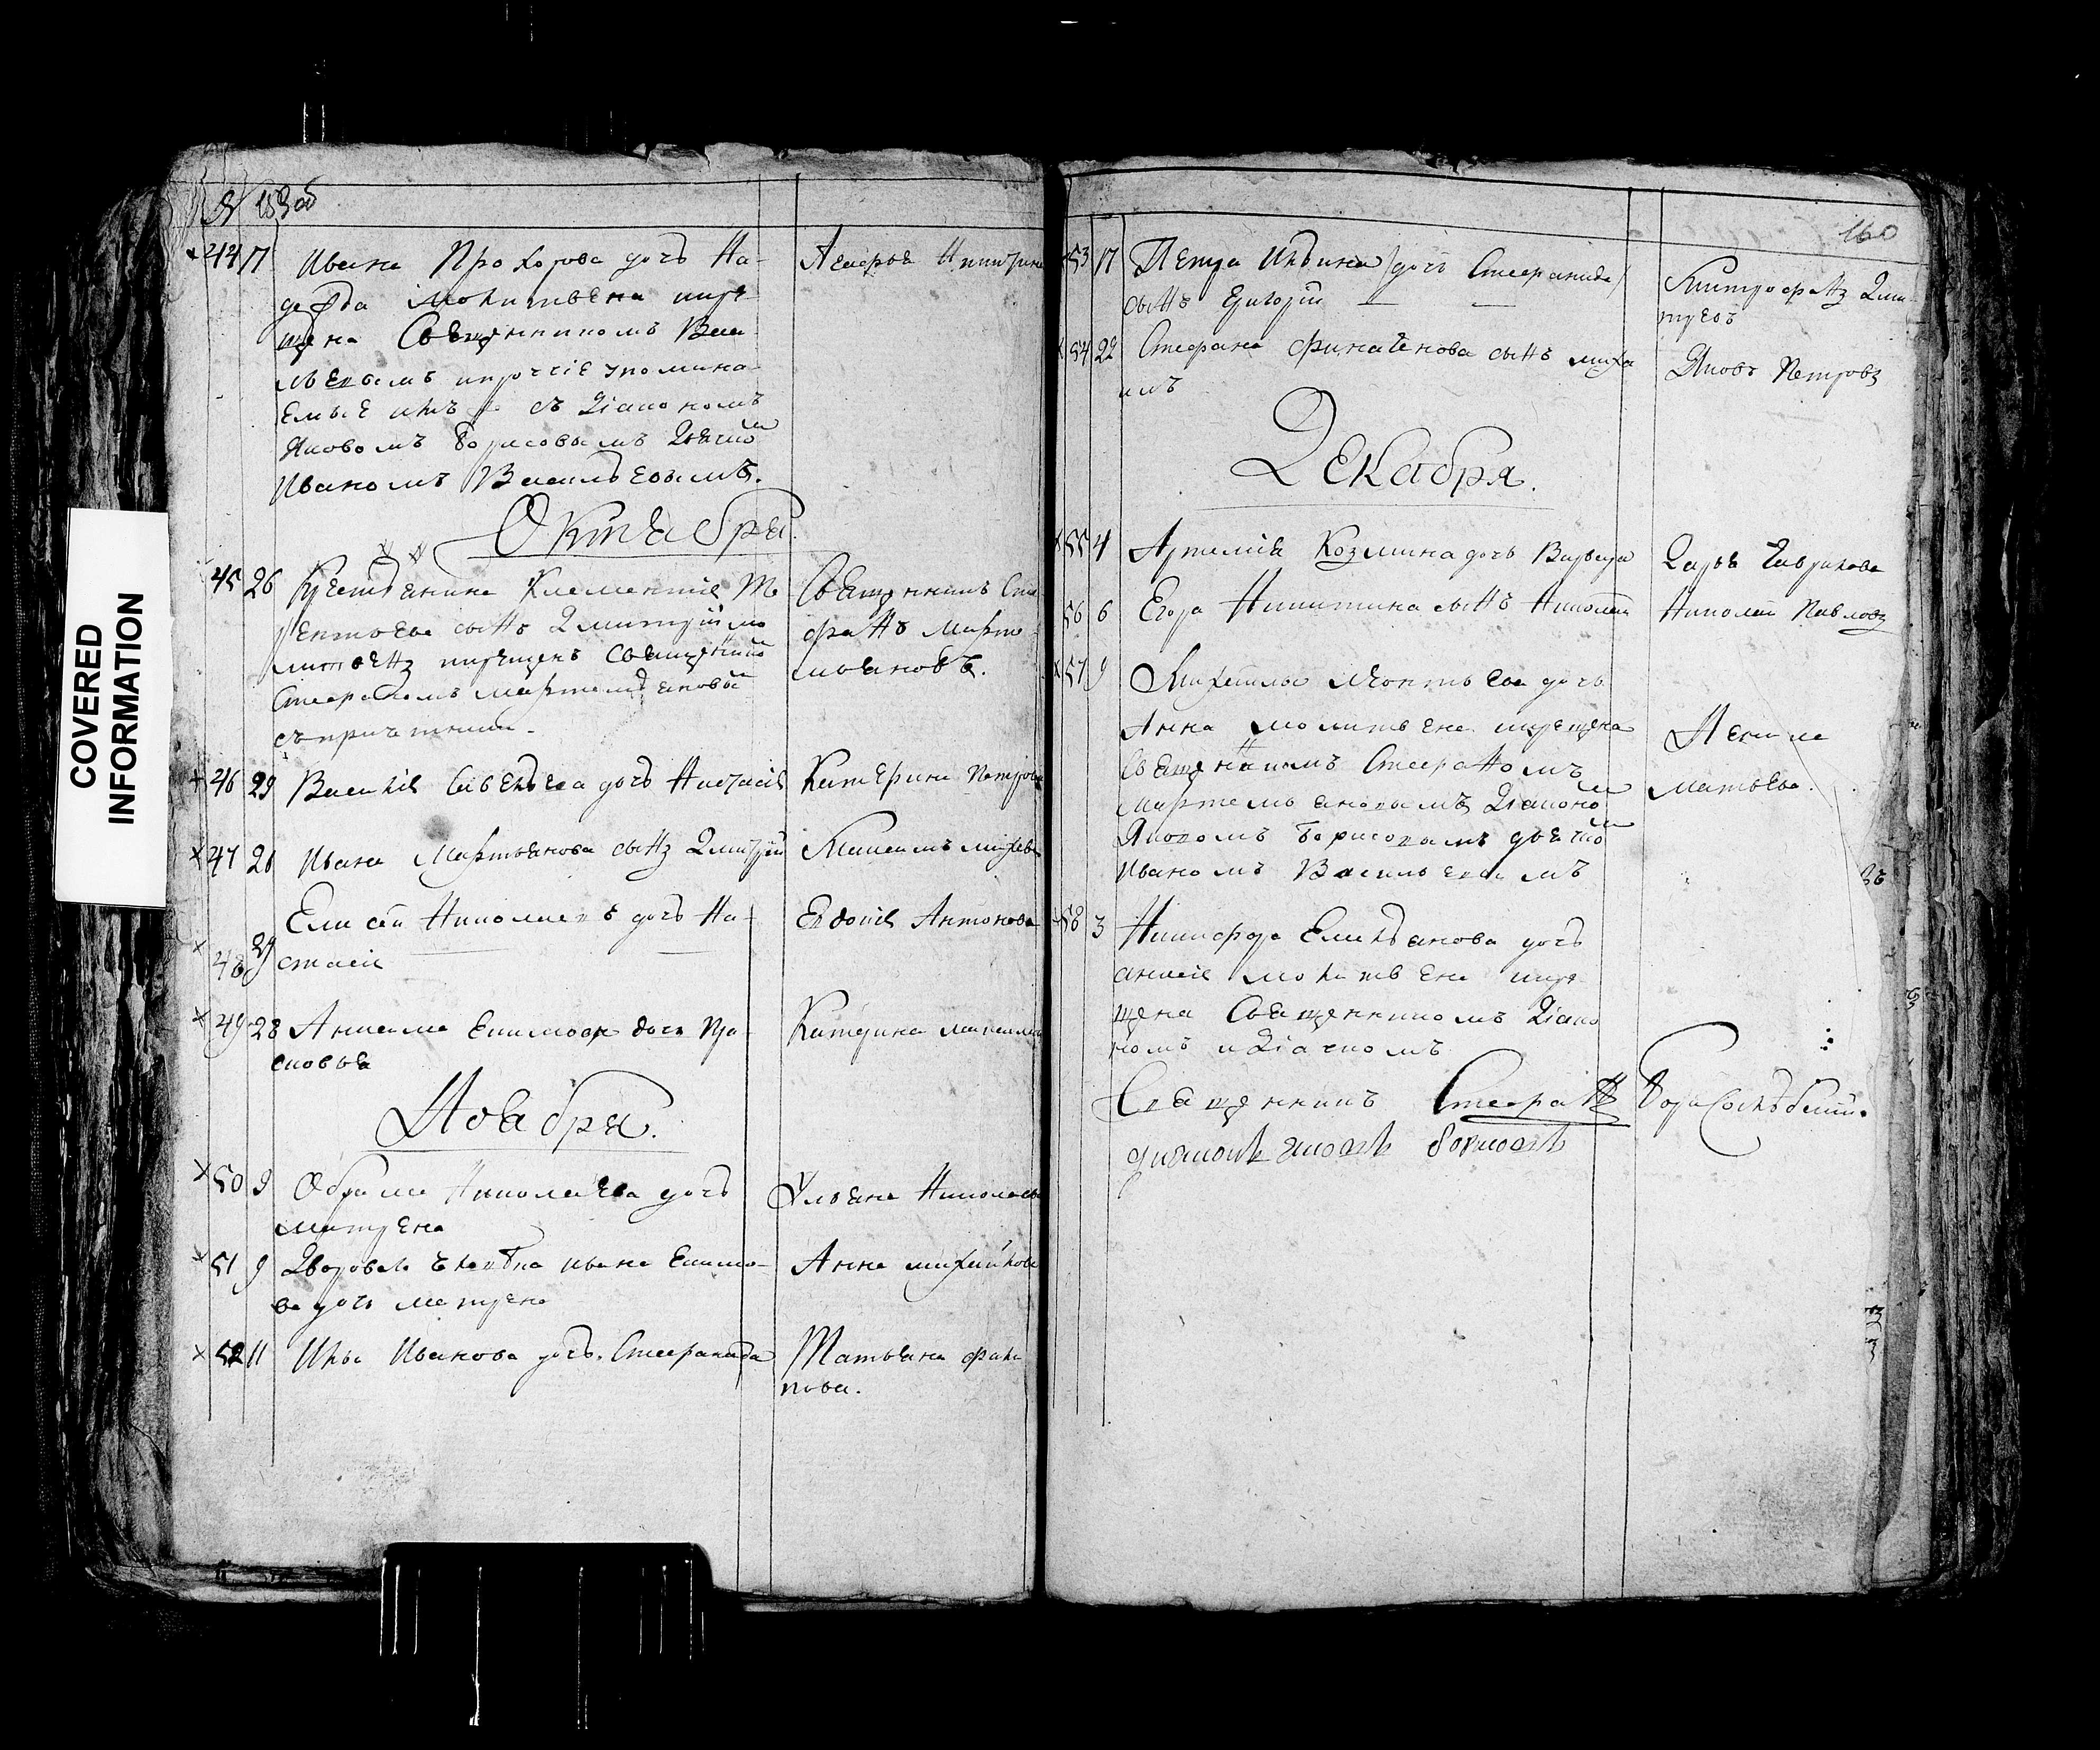 COVERED
INFORMATION
№
44 17 Ивана Прохорова дочь На-
дежда молитвена и кре-
щена Священникомъ Васи-
льевымъ и прочіе упомина-
емые съ Діакономъ
Яковомъ Борисовымъ Дьячко
Иваномъ Васильевымъ.
Агафья Никитина
Октября.
45 26 Крестьянина Климентія Те
рентьева сынъ Дмитрій мо
литвенъ и крещенъ Священнико
Стефаномъ Мартемьяновы
съ причтомъ.
Священникъ Сте
фанъ Марте
мьяновъ.
46 29 Василія Савельева дочь Настасія
Катерина Петрова
47 26 Ивана Мартьянова сынъ Дмитрій
48 29 Елисей Николаевъ дочь На-
стасія
Евдокія Антонова
49 28 Анисима Екимова дочь Пра-
сковья
Катерина
Ноября.
50 9 Абрама Николаева дочь
Матрена
Ульяна Николаева
51 9 Двороваго человека Ивана Екимо-
ва дочь Матрена
Анна Михайлова
52 11 Ильи Иванова дочь Стефанида
Татьяна Фили
пова.
160
53 17 Петра Ильина /дочь Стефанида/
сынъ Григорій
Митрофанъ Дми
тревъ
54 22 Стефана сынъ Миха
илъ
Яковъ Петровъ
Декабря.
55 4 Артемія Козмина дочь Варвара
Дарья Гаврилова
56 6 Егора Никитина сынъ Николай
Николай Павловъ
57 9 Михайлы Леонтьева дочь
Анна молитвена и крещена
Священникомъ Стефаномъ
Мартемьяновымъ Діаконо
Яковомъ Борисовымъ дьячко
Иваномъ Васильевымъ
Акилина
Матвева.
58 3 Никифора Емельянова дочь
Анисія молитвена и кре
щена Священникомъ Діако
номъ и Діачкомъ
Священникъ Стефанъ
Діаконъ Яковъ Борисовъ